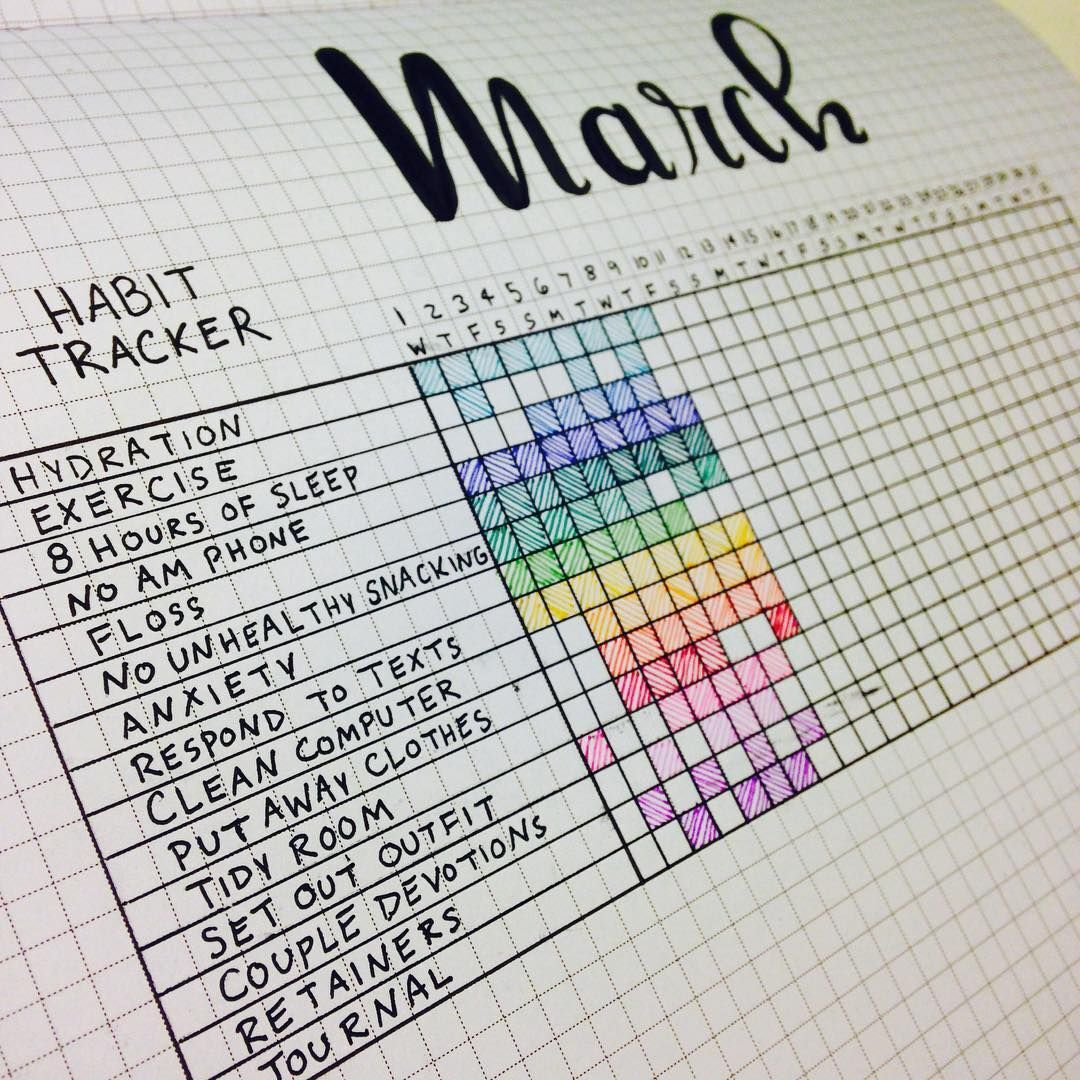 March
HABIT
TRACKER
1 2 3 4 5 6 7 8 9 10 11 12 13 14 15 16 17 18
W T F S S M T W T F S S M T W T F S S M T W
HYDRATION
EXERCISE
8 HOURS OF SLEEP
NO AM PHONE
FLOSS
NO UNHEALTHY SNACKING
ANXIETY
RESPOND TO TEXTS
CLEAN COMPUTER
PUT AWAY CLOTHES
TIDY ROOM
SET OUT OUTFIT
COUPLE DEVOTIONS
RETAINERS
JOURNAL